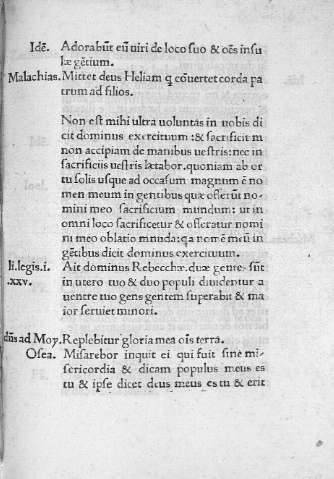 Idē. Adorabūt eū uiri de loco suo & oēs insu
læ gētium.
Malachias. Mittet deus Heliam q cōuertet corda pa
trum ad filios.
Non est mihi ultra uoluntas in uobis di
cit dominus exercituum: & sacrificium
non accipiam de manibus uestris: nec in
sacrificiis uestris lætabor. quoniam ab or
tu solis usque ad occasum magnum ē no
men meum in gentibus quæ offerūt no-
mini meo sacrificium mundum: ut in
omni loco sacrificetur & offeratur nomi
ni meo oblatio mnuda: qa nom ē meū in
gētibus dicit dominus exercituum.
li. legis. i. Ait dominus Rebecchæ. duæ gentes sūt
.xxv. in utero tuo & duo populi diuidentur a
uentre tuo gens gentem superabit & ma
ior seruiet minori.
dn̄s ad Moy. Replebitur gloria mea oīs terra.
Osea. Misarebor inquit ei qui fuit sine mi-
sericordia & dicam populus meus es
tu & ipse dicet deus meus es tu & erit